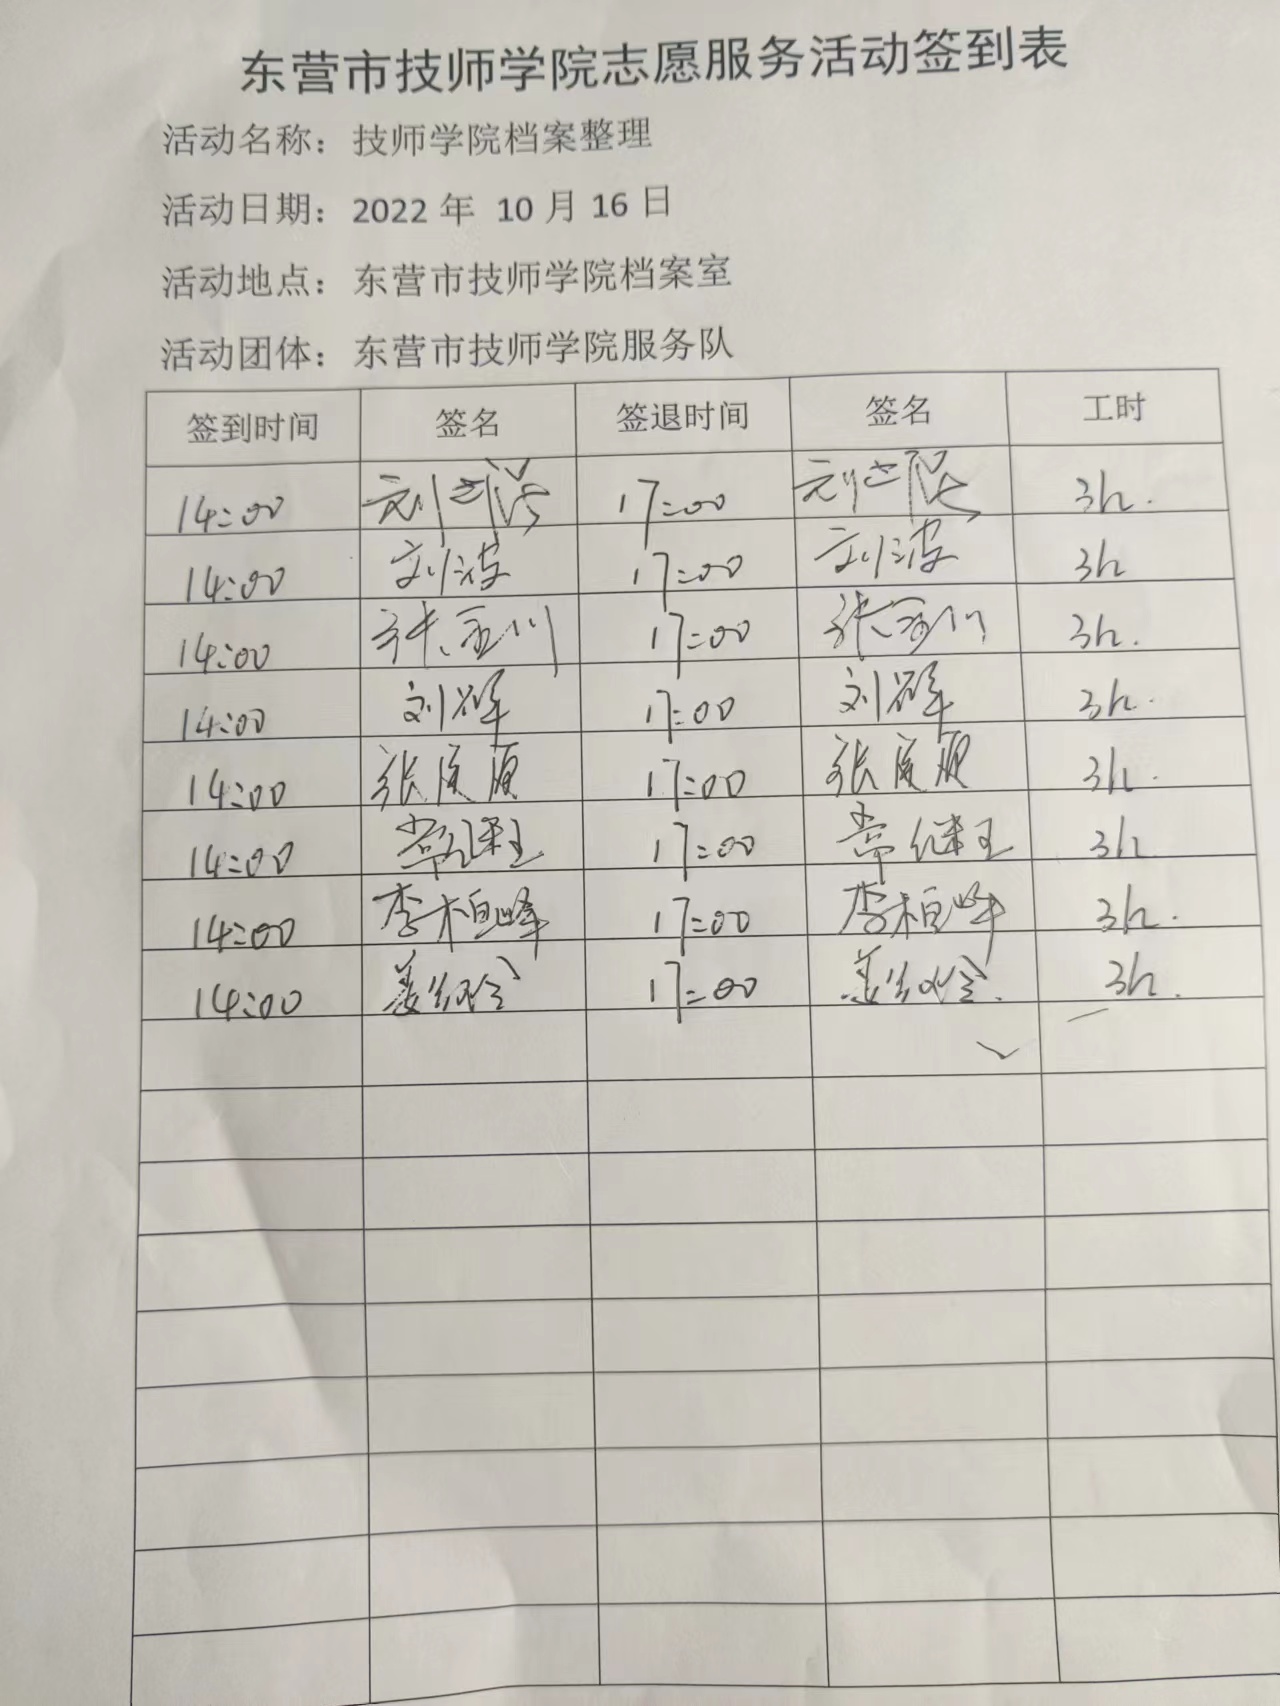 东营市技师学院志愿服务活动签到表
活动名称：技师学院档案整理
活动日期：2022年 10月16日
活动地点：东营市技师学院档案室
活动团体：东营市技师学院服务队
签到时间 签名 签退时间 签名 工时
14:00 刘 17:00 刘 3h.
14:00 刘波 17:00 刘波 3h
14:00 张 17:00 张 3h.
14:00 刘 17:00 刘 3h.
14:00 张 17:00 张 3h.
14:00 常继王 17:00 常继王 3h
14:00 李柏峰 17:00 李柏峰 3h.
14:00 姜 17:00 姜 3h.